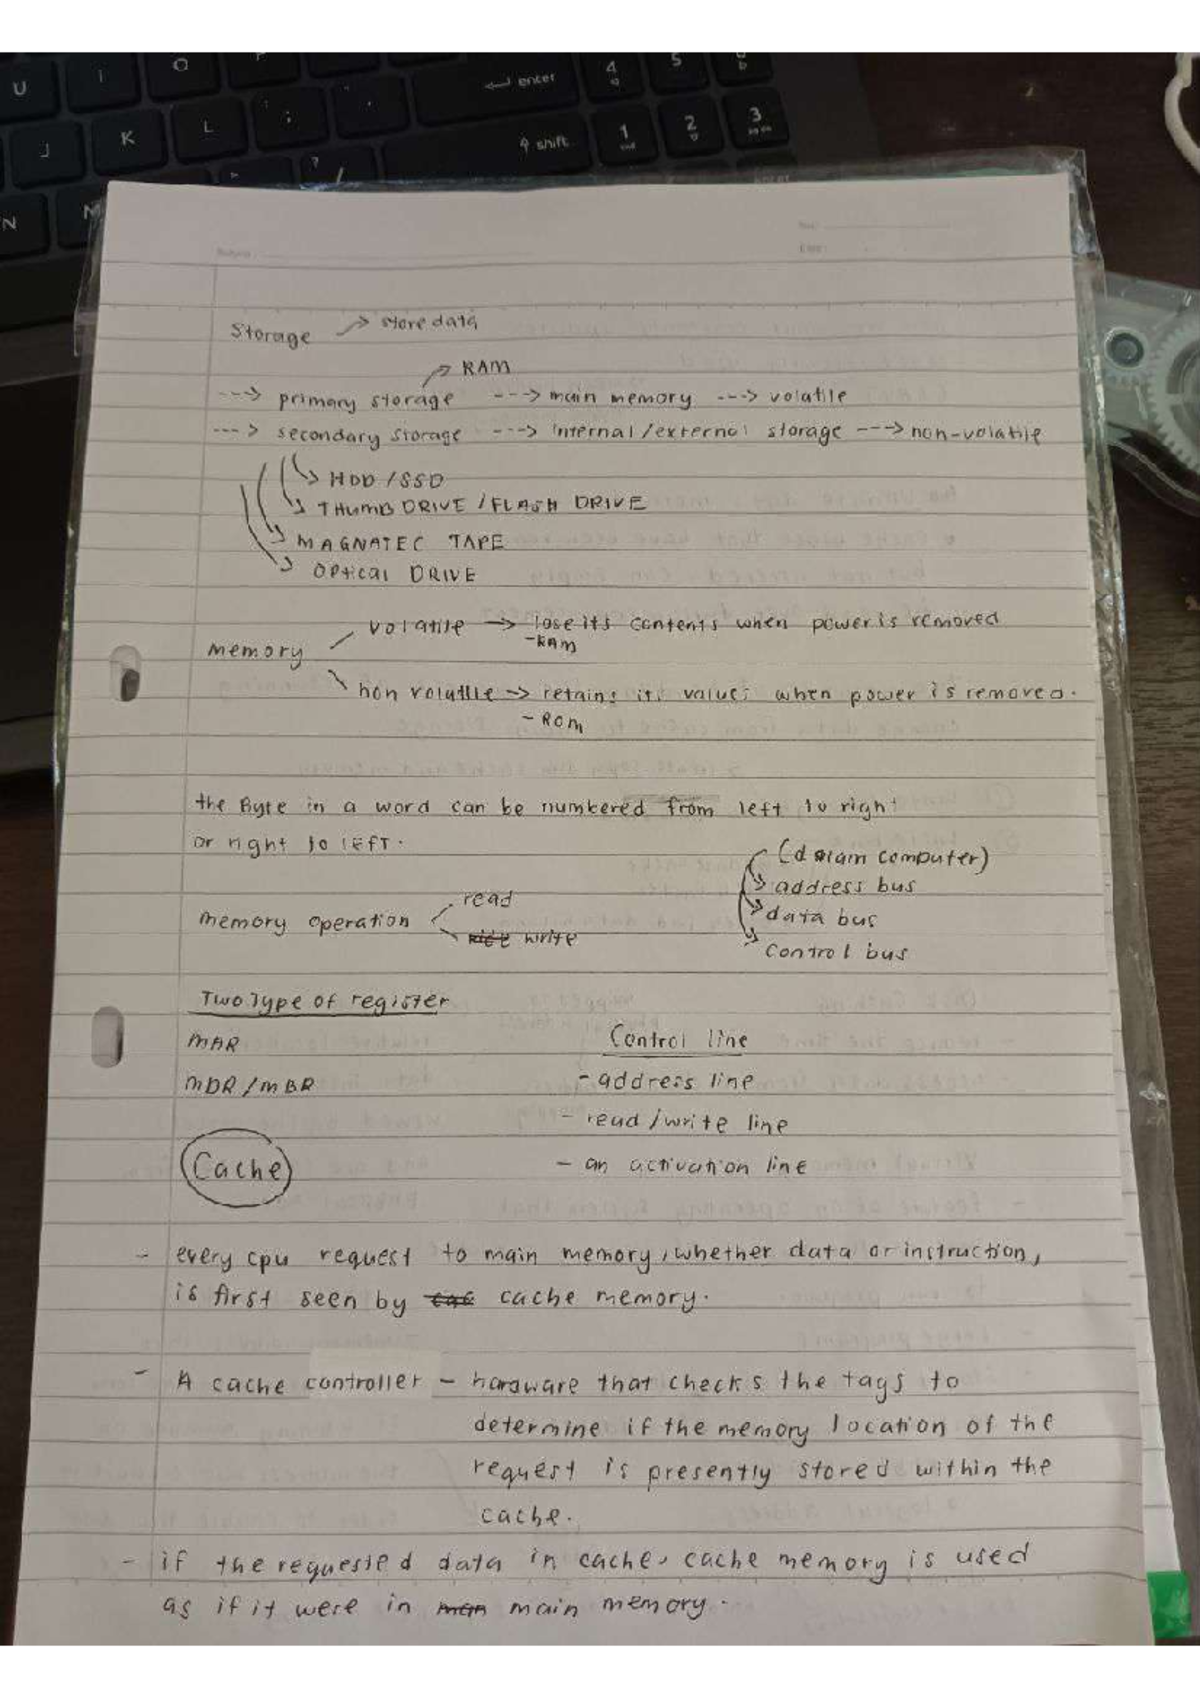 U
I
O
P
enter
4
5
6
J
K
L
;
shift
1
2
3
N
M
?
/
Storage → store data
→ RAM
---> primary storage ---> main memory ---> volatile
---> secondary storage ---> internal/external storage ---> non-volatile
→ HDD / SSD
→ THUMB DRIVE / FLASH DRIVE
→ MAGNATEC TAPE
→ Optical DRIVE
Memory
volatile → lose its contents when power is removed
- RAM
non volatile → retains its values when power is removed.
- ROM
the Byte in a word can be numbered from left to right
or right to left.
memory operation
read
write
(dalam computer)
→ address bus
→ data bus
→ control bus
Two Type of register
MAR
MDR / MBR
Control line
- address line
- read / write line
- an activation line
Cache
- every cpu request to main memory, whether data or instruction,
is first seen by cache memory.
- A cache controller - hardware that checks the tags to
determine if the memory location of the
request is presently stored within the
cache.
- if the requested data in cache, cache memory is used
as if it were in main memory.